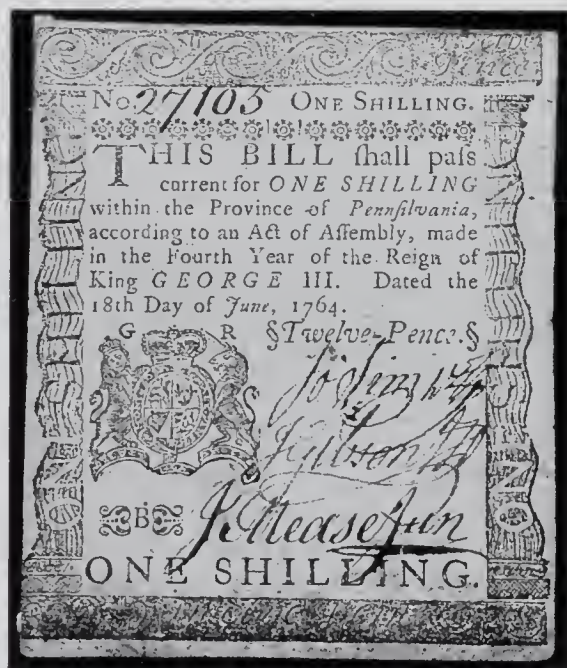 No 27105 ONE SHILLING.
THIS BILL ſhall paſs
current for ONE SHILLING
within the Province of Pennſilvania,
according to an Act of Aſſembly, made
in the Fourth Year of the Reign of
King GEORGE III. Dated the
18th Day of June, 1764.
G R §Twelve-Pence.§
B
ONE SHILLING.